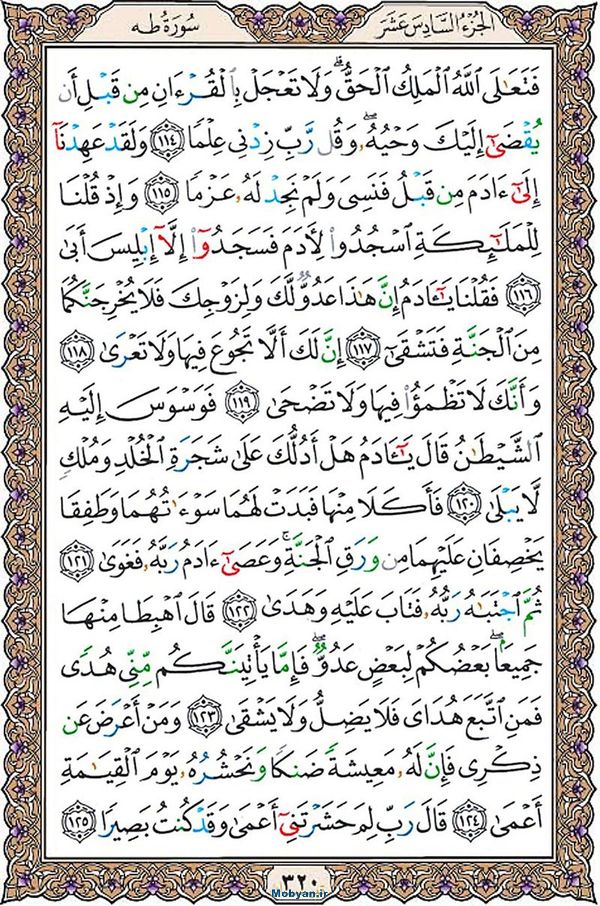 الجُزءُ السَّادِسَ عَشَرَ
سُورَةُ طه
فَتَعَٰلَى ٱللَّهُ ٱلۡمَلِكُ ٱلۡحَقُّۗ وَلَا تَعۡجَلۡ بِٱلۡقُرۡءَانِ مِن قَبۡلِ أَن
يُقۡضَىٰٓ إِلَيۡكَ وَحۡيُهُۥۖ وَقُل رَّبِّ زِدۡنِي عِلۡمٗا ١١٤ وَلَقَدۡ عَهِدۡنَآ
إِلَىٰٓ ءَادَمَ مِن قَبۡلُ فَنَسِيَ وَلَمۡ نَجِدۡ لَهُۥ عَزۡمٗا ١١٥ وَإِذۡ قُلۡنَا
لِلۡمَلَٰٓئِكَةِ ٱسۡجُدُواْ لِأٓدَمَ فَسَجَدُوٓاْ إِلَّآ إِبۡلِيسَ أَبَىٰ
١١٦ فَقُلۡنَا يَٰٓـَٔادَمُ إِنَّ هَٰذَا عَدُوّٞ لَّكَ وَلِزَوۡجِكَ فَلَا يُخۡرِجَنَّكُمَا
مِنَ ٱلۡجَنَّةِ فَتَشۡقَىٰٓ ١١٧ إِنَّ لَكَ أَلَّا تَجُوعَ فِيهَا وَلَا تَعۡرَىٰ ١١٨
وَأَنَّكَ لَا تَظۡمَؤُاْ فِيهَا وَلَا تَضۡحَىٰ ١١٩ فَوَسۡوَسَ إِلَيۡهِ
ٱلشَّيۡطَٰنُ قَالَ يَٰٓـَٔادَمُ هَلۡ أَدُلُّكَ عَلَىٰ شَجَرَةِ ٱلۡخُلۡدِ وَمُلۡكٖ
لَّا يَبۡلَىٰ ١٢٠ فَأَكَلَا مِنۡهَا فَبَدَتۡ لَهُمَا سَوۡءَٰتُهُمَا وَطَفِقَا
يَخۡصِفَانِ عَلَيۡهِمَا مِن وَرَقِ ٱلۡجَنَّةِۚ وَعَصَىٰٓ ءَادَمُ رَبَّهُۥ فَغَوَىٰ ١٢١
ثُمَّ ٱجۡتَبَٰهُ رَبُّهُۥ فَتَابَ عَلَيۡهِ وَهَدَىٰ ١٢٢ قَالَ ٱهۡبِطَا مِنۡهَا
جَمِيعَۢاۖ بَعۡضُكُمۡ لِبَعۡضٍ عَدُوّٞۖ فَإِمَّا يَأۡتِيَنَّكُم مِّنِّي هُدٗى
فَمَنِ ٱتَّبَعَ هُدَايَ فَلَا يَضِلُّ وَلَا يَشۡقَىٰ ١٢٣ وَمَنۡ أَعۡرَضَ عَن
ذِكۡرِي فَإِنَّ لَهُۥ مَعِيشَةٗ ضَنكٗا وَنَحۡشُرُهُۥ يَوۡمَ ٱلۡقِيَٰمَةِ
أَعۡمَىٰ ١٢٤ قَالَ رَبِّ لِمَ حَشَرۡتَنِيٓ أَعۡمَىٰ وَقَدۡ كُنتُ بَصِيرٗا ١٢٥
٣٢٠
Mobyan.ir